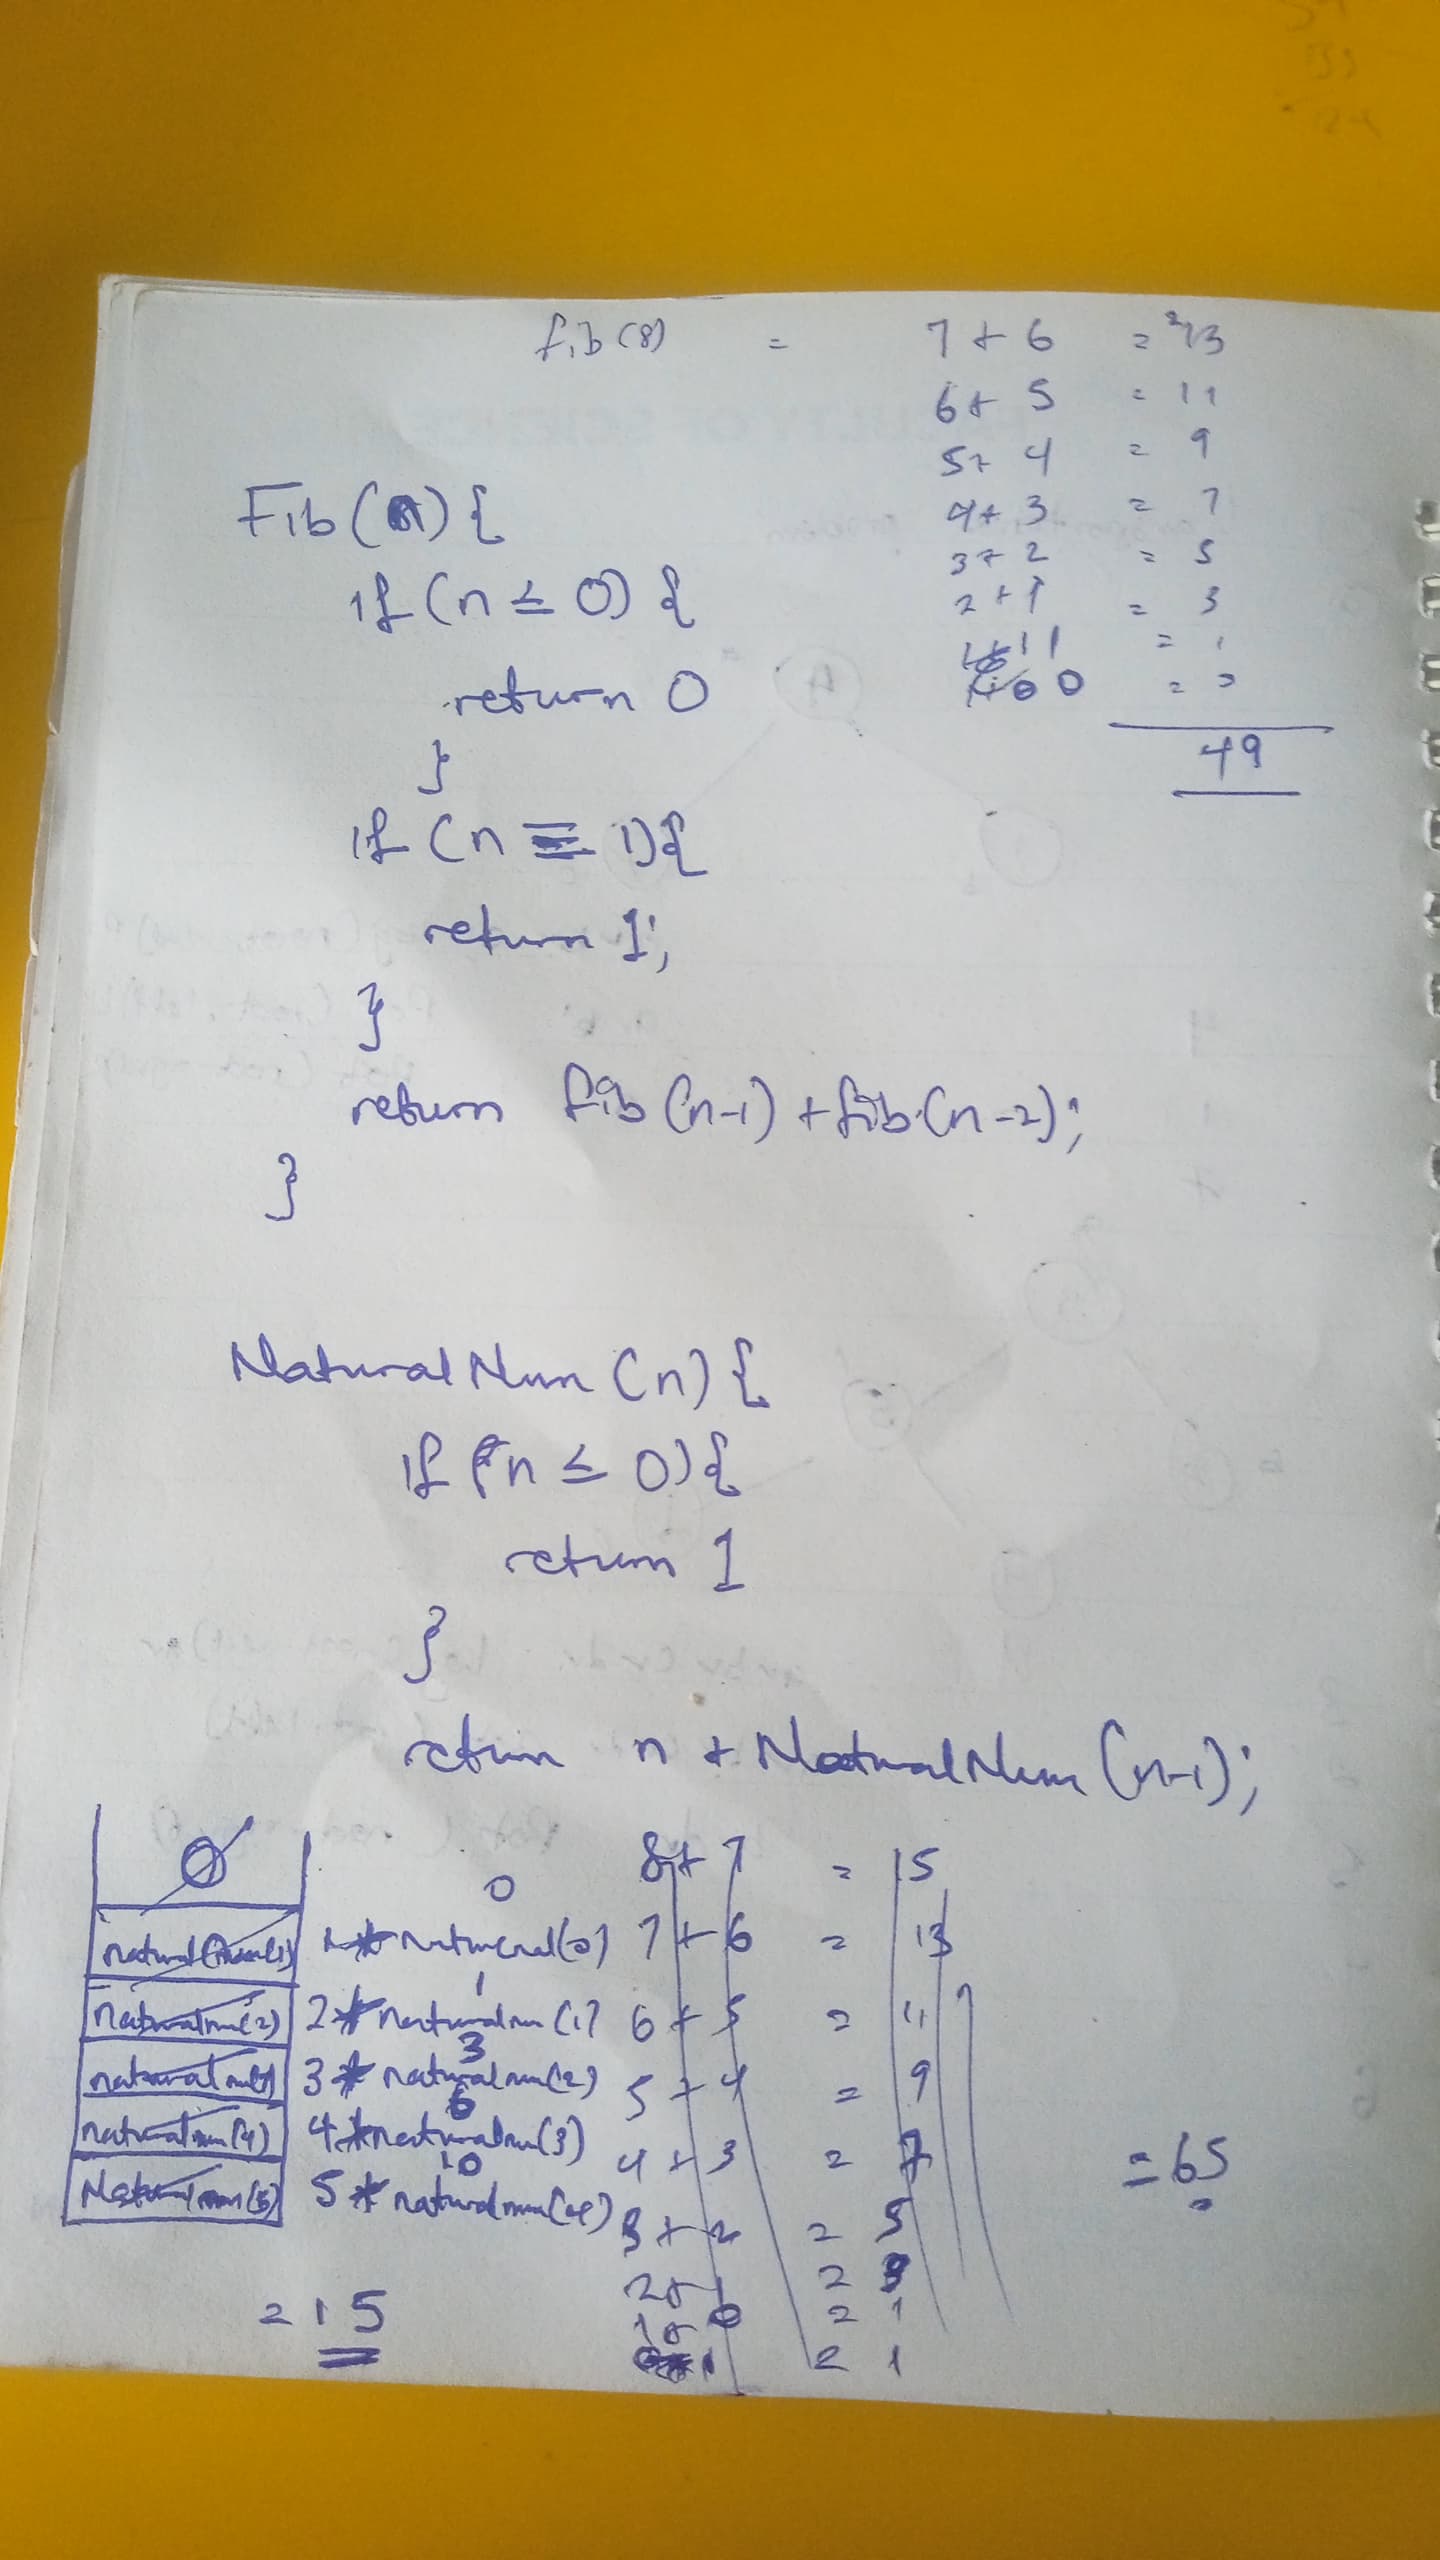 fib(8) = 7 + 6 = 13
6 + 5 = 11
5 + 4 = 9
4 + 3 = 7
3 + 2 = 5
2 + 1 = 3
1 = 1
0 = 0
49
Fib(n){
if (n ≤ 0) {
return 0
}
if (n = 1){
return 1;
}
return fib(n-1) + fib(n-2);
}
Natural Num (n) {
if (n ≤ 0) {
return 1
}
return n + NaturalNum (n-1);
0
0
natural num(1) 1 * natural(0)
1
naturalnum(2) 2 * naturalnum(1)
3
naturalnum(3) 3 * naturalnum(2)
6
naturalnum(4) 4 * naturalnum(3)
10
Naturalnum(5) 5 * naturalnum(4)
= 15
8 + 7 = 15
7 + 6 = 13
6 + 5 = 11
5 + 4 = 9
4 + 3 = 7
3 + 2 = 5
2 + 1 = 3
1 + 0 = 1
= 1
= 65